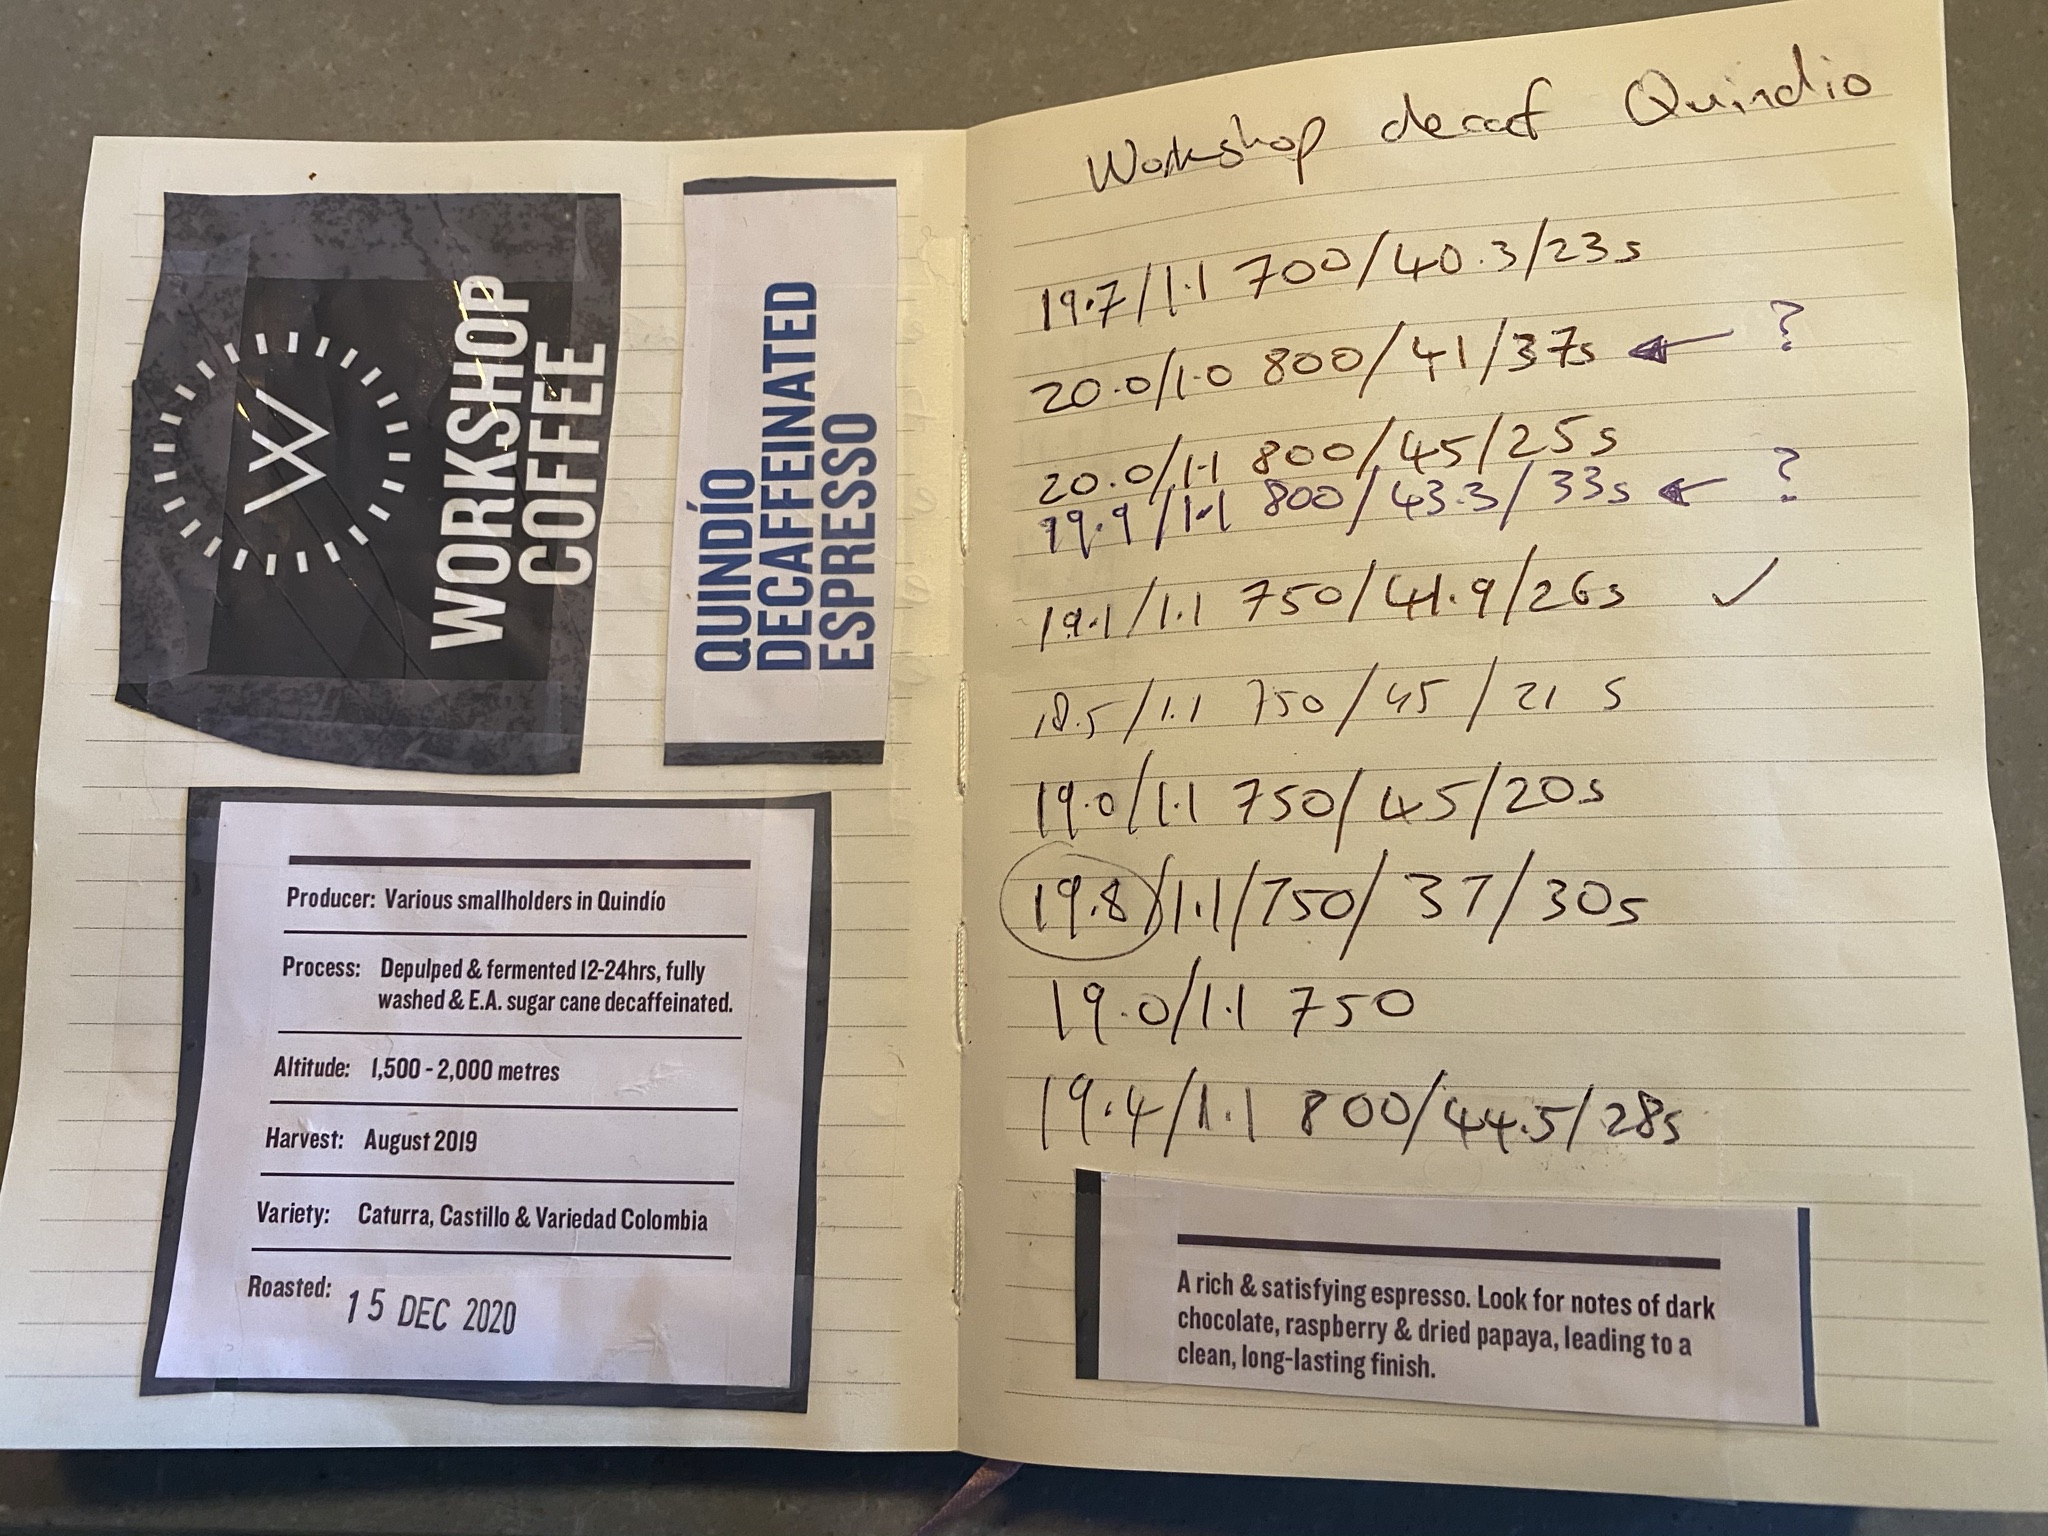 WORKSHOP
COFFEE
QUINDÍO
DECAFFEINATED
ESPRESSO
Producer: Various smallholders in Quindío
Process: Depulped & fermented 12-24hrs, fully
washed & E.A. sugar cane decaffeinated.
Altitude: 1,500 - 2,000 metres
Harvest: August 2019
Variety: Caturra, Castillo & Variedad Colombia
Roasted: 15 DEC 2020
Workshop decaf Quindio
19.7/1.1 700/40.3/23s
20.0/1.0 800/41/37s ← ?
20.0/1.1 800/45/25s
19.9/1.1 800/43.3/33s ← ?
19.1/1.1 750/41.9/26s ✓
18.5/1.1 750/45/21 s
19.0/1.1 750/45/20s
19.8/1.1/750/37/30s
19.0/1.1 750
19.4/1.1 800/44.5/28s
A rich & satisfying espresso. Look for notes of dark
chocolate, raspberry & dried papaya, leading to a
clean, long-lasting finish.